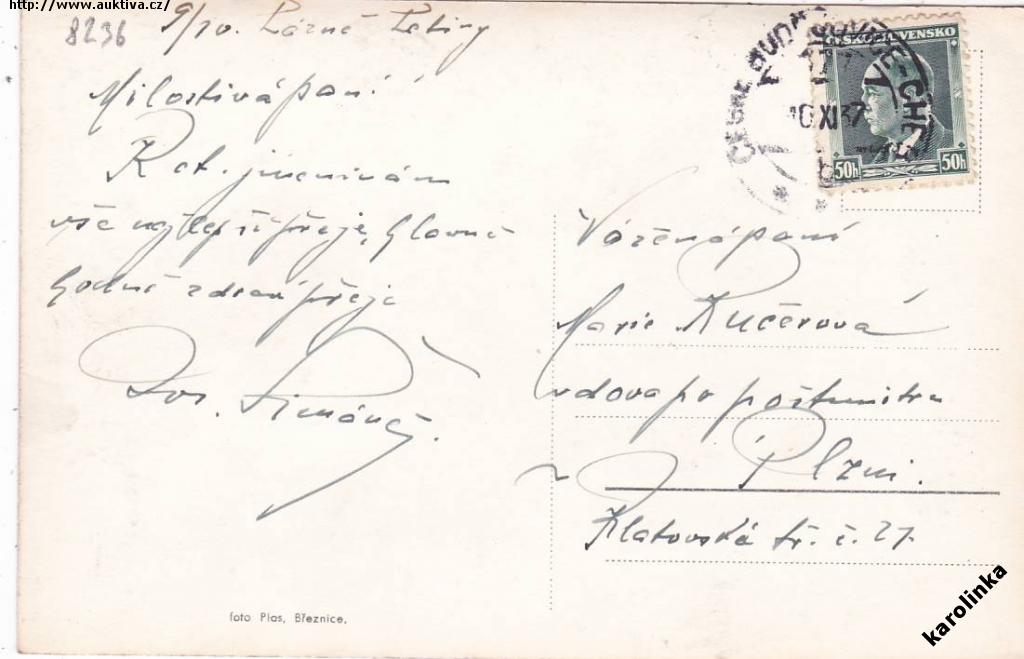 http://www.auktiva.cz/
8236
9/10. Lázně Letiny
Milostivá paní!
K ct. jmeninám
vše nejlepší přeje, hlavně
hodně zdraví přeje
Jos.
Vážená paní
Marie Kučerová
vdova po poštmistru
v Plzni.
Klatovská tř. č. 27.
ČESKOSLOVENSKO
50h 50h
10 XI 37
foto Plas, Březnice.
karolinka